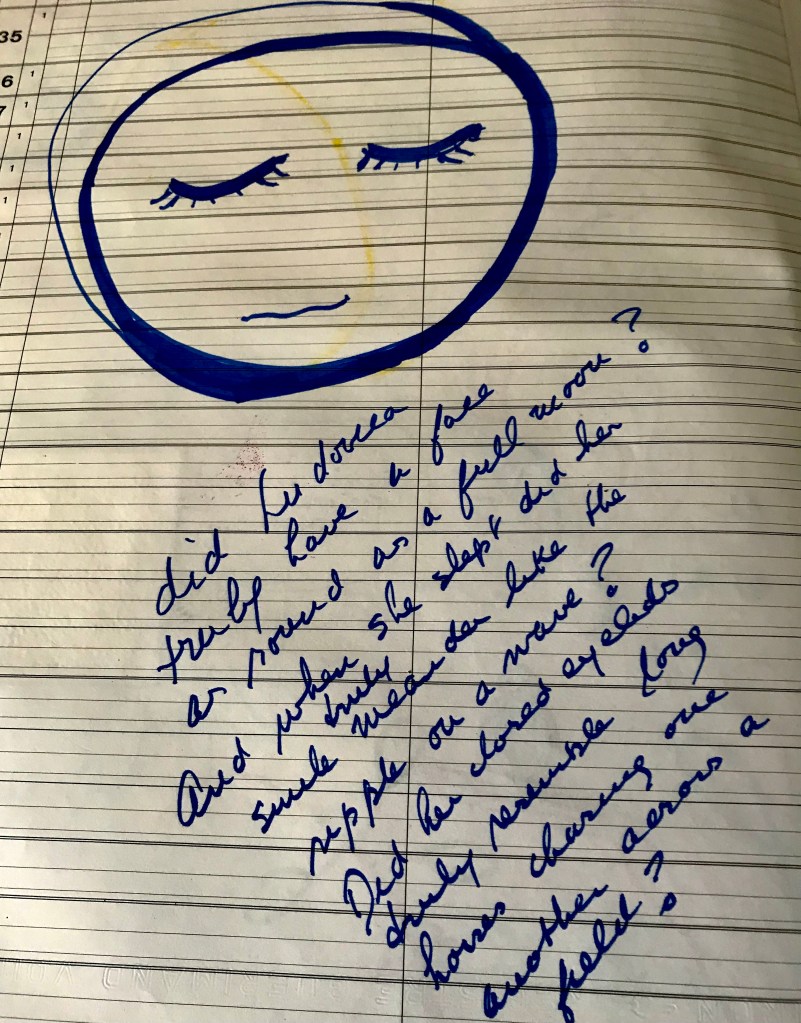 35
6
7
did Ludovica
truly have a face
as round as a full moon?
And when she slept did her
truly
smile meander like the
ripple on a wave?
Did her closed eyelids
truly resemble long
horses chasing one
another across a
field?